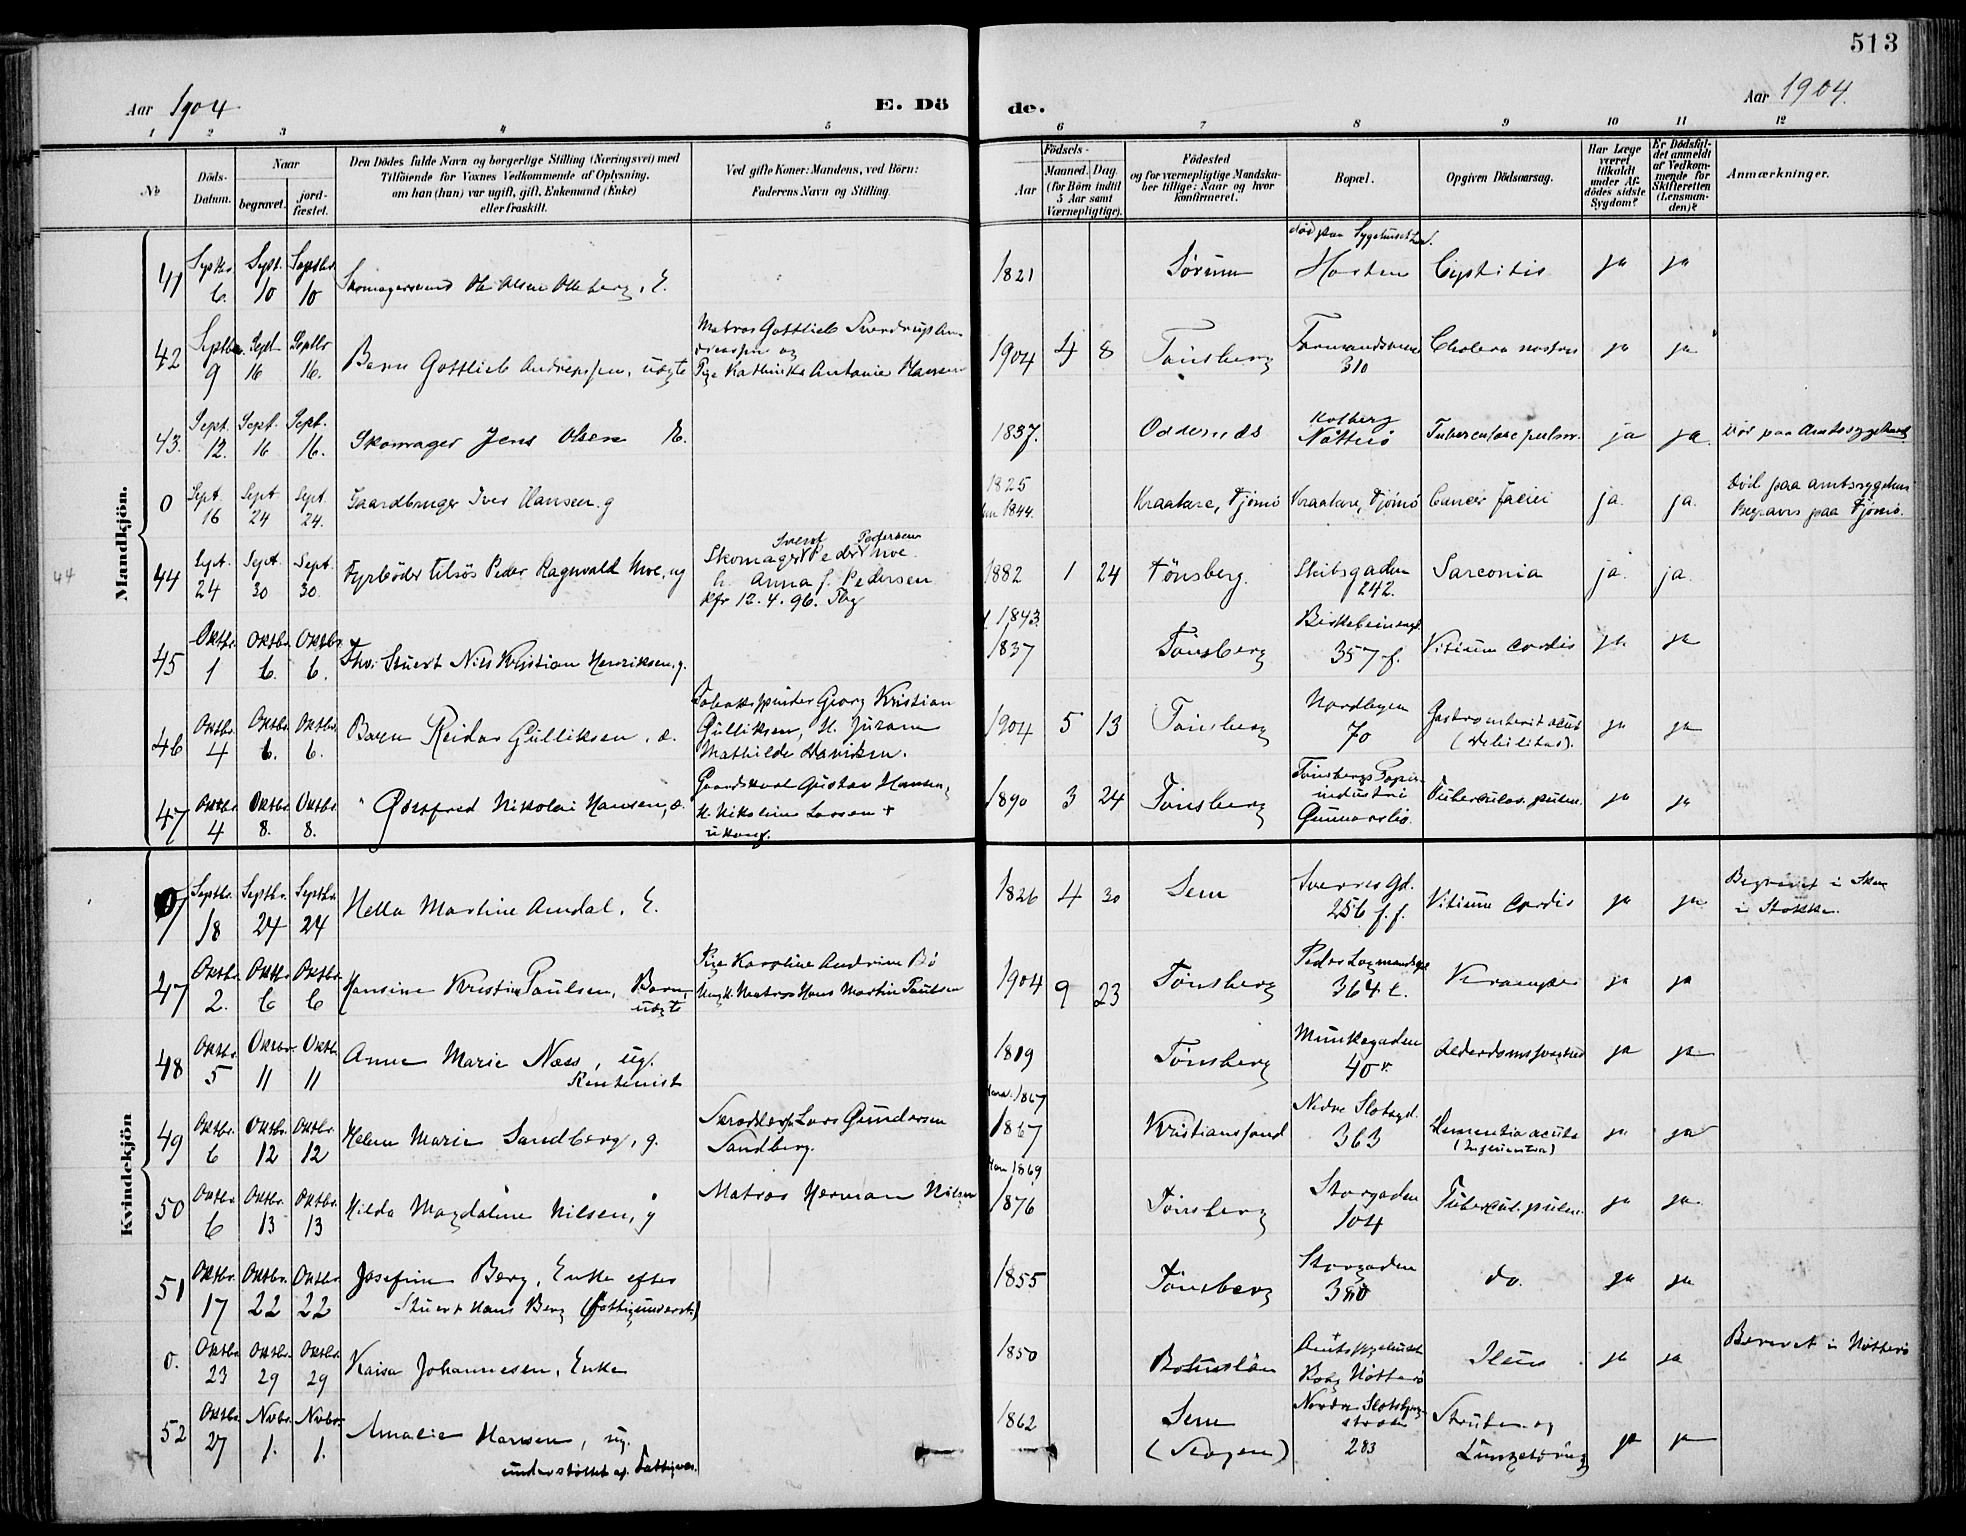 513
Aar 1904
E. Dö
de.
Aar 1904.
1 2 3 4 5 6 7 8 9 10 11 12
No
Döds-
Datum.
Naar
begravet.
jord-
fæstet.
Den Dödes fulde Navn og borgerlige Stilling (Næringsvei) med
Tilföiende for Voxnes Vedkommende af Oplysning,
om han (hun) var ugift, gift, Enkemand (Enke)
eller fraskilt.
Ved gifte Koner: Mandens, ved Börn:
Faderens Navn og Stilling.
Födsels-
Aar
Maaned.
Dag.
(for Börn indtil
5 Aar samt
Værnepligtige).
Födested
og for værnepligtige Mandska-
ber tillige: Naar og hvor
konfirmeret.
Bopæl.
Opgiven Dödsaarsag.
Har Læge
været
tilkaldt
under Af-
dödes sidste
Sygdom?
Er Dödsfal-
det anmeldt
af Vedkom-
mende for
Skifteretten
(Lensman-
den)?
Anmærkninger.
Mandkjön.
41 Septbr. 6. Sept. 10 Septbr. 10 Ole Olsen E. 1821 Sörum død paa Sygehuset Horten ja ja
42 Septbr. 9 Sept 16 Septbr 16. Barn Gottlieb Andreassen, uægte
Matros Gottlieb Sverdrup An-
dreassen og
Pige Kathinka Antonie Hansen
1904 4 8 Tönsberg 310 Cholera nostras ja ja
43. Sept. 12. Sept. 16 Sept. 16. Skomager Jens Olsen E. 1837. Oddernes
Nötterö ja ja Död paa Amtssygehuset
0 Sept. 16 Sept. 24 Sept. 24. Gaardbruger Iver Hansen. g
1825
1844. Kraakere, Tjömö Kraakere, Tjömö Cancer faciei ja. ja.
Död paa amtssygehus
Begraves paa Tjömö.
44
44 Sept. 24 Sept. 30 Sept. 30. Fyrböder tilsös Peder Ragnvald Moe, ug
Svend Pedersen
Skomager Peder Moe.
h. Anna f. Pedersen
Kfr 12. 4. 96. Tbg
1882 1 24 Tönsberg. 242. Sarcoma ja. ja.
45 Oktbr. 1 Oktbr. 6. Oktbr. 6. Fhv. Stuert Nils Kristian Henriksen, g.
1843.
1837 Tönsberg 357 f. Vitium cordis ja ja
46 Oktbr. 4 Oktbr. 6. Oktbr. 6. Barn Reidar Gulliksen, æ.
Tobaksspinder Georg Kristian
Gulliksen, H.
Mathilde
1904 5 13 Tönsberg Nordbyen 70 Gastroenterit acut
(debilitas). ja ja
47 Oktbr. 4 Oktbr. 8. Oktbr. 8. " Gottfred Nikolai Hansen, æ.
Gaardskarl Gustav Hansen,
H. Nikoline Larsen +
ukonf.
1890 3 24 Tönsberg Tönsbergs Papir-
industri
Tuberculos. pulm. ja ja
Kvindekjön
0 Septbr. 18 Septbr. 24 Septbr. 24 Hella Martine Amdal, E. 1826 4 30 Sem
Sverresgd.
256 f. f. Vitium cordis ja ja Begravet i
i Stokke.
47 Oktbr. 2. Oktbr. 6 Oktbr. 6 Hansine Kristine Paulsen, Barn,
uægte
Pige Karoline Andrine Bö
Ungk. Matros Hans Martin Paulsen
1904 9 23 Tönsberg Peder Lagmandsgd.
364 t. Kramper ja ja
48 Oktbr. 5 Oktbr. 11 Oktbr. 11 Anne Marie Næss, ug.
Rentenist
1819 Tönsberg Munkegaden
40 Alderdomssvaghed ja ja
49 Oktbr. 6 Oktbr. 12 Oktbr. 12 Helene Marie Sandberg, g.
Lars Gundersen
Sandberg.
1867
1867 Kristianssand Nedre Slotsgd.
363 Dementia acuta ja ja
50 Oktbr. 6 Oktbr. 13 Oktbr. 13 Hilda Magdaline Nilsen, g Matros Herman Nilsen
1869
1876 Tönsberg Storgaden
104 Tubercul. pulm. ja ja
51 Oktbr. 17 Oktbr. 22 Oktbr. 22 Josefine Berg, Enke efter
Stuert Hans Berg (fattigunderst.)
1855 Tönsberg Storgaden do. ja ja
0. Oktbr. 23 Oktbr. 29 Oktbr. 29 Kaisa Johannesen, Enke 1850 Bohuslän
Amtssygehuset
Nötterö Ileus ja ja i Nötterö
52 Oktbr. 27 Nvbr. 1. Nvbr. 1. Amalie Hansen, ug.
understöttet af Fattigvæs.
1862 Sem
Nordre Slotsbjerg-
stræde
283 Strube- og
ja ja